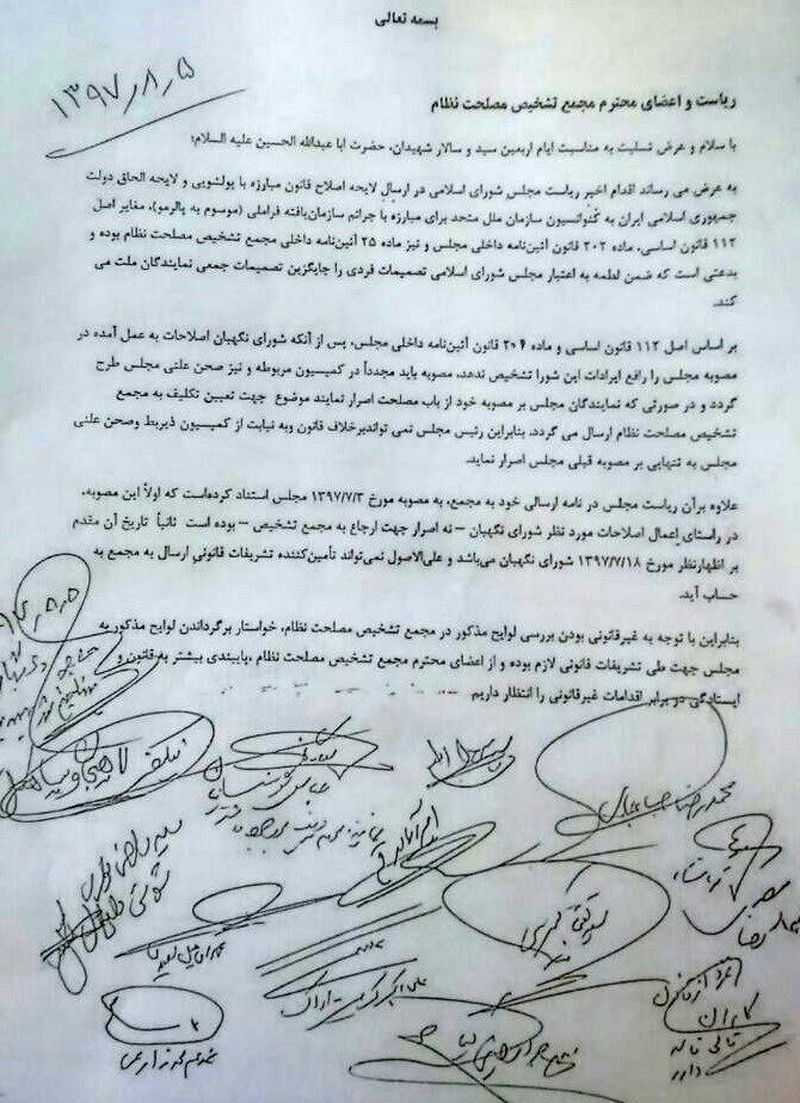 بسمه تعالی
۱۳۹۷٫۸٫۵
ریاست و اعضای محترم مجمع تشخیص مصلحت نظام
با سلام و عرض تسلیت به مناسبت ایام اربعین سید و سالار شهیدان، حضرت ابا عبدالله الحسین علیه السلام؛
به عرض می رساند اقدام اخیر ریاست مجلس شورای اسلامی در ارسال لایحه اصلاح قانون مبارزه با پولشویی و لایحه الحاق دولت
جمهوری اسلامی ایران به کنوانسیون سازمان ملل متحد برای مبارزه با جرائم سازمان‌یافته فراملی (موسوم به پالرمو)، مغایر اصل
۱۱۲ قانون اساسی، ماده ۲۰۲ قانون آئین‌نامه داخلی مجلس و نیز ماده ۲۵ آئین‌نامه داخلی مجمع تشخیص مصلحت نظام بوده و
بدعتی است که ضمن لطمه به اعتبار مجلس شورای اسلامی تصمیمات فردی را جایگزین تصمیمات جمعی نمایندگان ملت می
کند.
بر اساس اصل ۱۱۲ قانون اساسی و ماده ۲۰۴ قانون آئین‌نامه داخلی مجلس، پس از آنکه شورای نگهبان اصلاحات به عمل آمده در
مصوبه مجلس را رافع ایرادات این شورا تشخیص ندهد، مصوبه باید مجدداً در کمیسیون مربوطه و نیز صحن علنی مجلس طرح
گردد و در صورتی که نمایندگان مجلس بر مصوبه خود از باب مصلحت اصرار نمایند موضوع جهت تعیین تکلیف به مجمع
تشخیص مصلحت نظام ارسال می گردد. بنابراین رئیس مجلس نمی تواندبرخلاف قانون وبه نیابت از کمیسیون ذیربط وصحن علنی
مجلس به تنهایی بر مصوبه قبلی مجلس اصرار نماید.
علاوه برآن ریاست مجلس در نامه ارسالی خود به مجمع، به مصوبه مورخ ۱۳۹۷/۷/۳ مجلس استناد کرده‌است که اولاً این مصوبه،
در راستای اعمال اصلاحات مورد نظر شورای نگهبان – نه اصرار جهت ارجاع به مجمع تشخیص – بوده است ثانیاً تاریخ آن مقدم
بر اظهارنظر مورخ ۱۳۹۷/۷/۱۸ شورای نگهبان می‌باشد و علی‌الاصول نمی‌تواند تأمین‌کننده تشریفات قانونی ارسال به مجمع به
حساب آید.
بنابراین با توجه به غیرقانونی بودن بررسی لوایح مذکور در مجمع تشخیص مصلحت نظام، خواستار برگرداندن لوایح مذکور به
مجلس جهت طی تشریفات قانونی لازم بوده و از اعضای محترم مجمع تشخیص مصلحت نظام ،پایبندی بیشتر به قانون و
ایستادگی در برابر اقدامات غیرقانونی را انتظار داریم
محمدرضا
علی اکبر کریمی - اراک